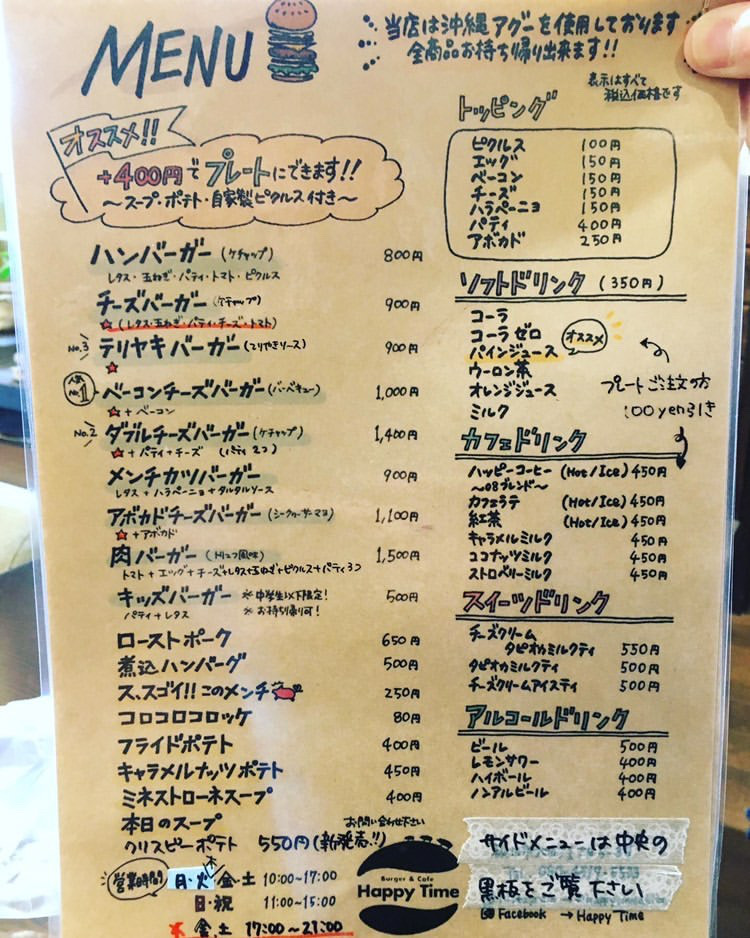 MENU
当店は沖縄アグーを使用しております
全商品お持ち帰り出来ます!!
表示はすべて
税込価格です
オススメ!!
+400円でプレートにできます!!
～スープ・ポテト・自家製ピクルス付き～
ハンバーガー(ケチャップ) 800円
レタス・玉ねぎ・パティ・トマト・ピクルス
チーズバーガー(ケチャップ) 900円
☆(レタス・玉ねぎ・パティ・チーズ・トマト)
No.3 テリヤキバーガー(てりやきソース) 900円
☆
人気No.1 ベーコンチーズバーガー(バーベキュー) 1,000円
☆+ベーコン
No.2 ダブルチーズバーガー(ケチャップ) 1,400円
☆+パティ+チーズ (パティ2つ)
メンチカツバーガー 900円
レタス+ハラペーニョ+タルタルソース
アボカドチーズバーガー(シークヮーサーマヨ) 1,100円
☆+アボカド
肉バーガー 1,500円
トマト+エッグ+チーズ+レタス+玉ねぎ+ピクルス+パティ3つ
キッズバーガー ※中学生以下限定! 500円
パティ+レタス ※お持ち帰り可!
ローストポーク 650円
煮込ハンバーグ 500円
ス、スゴイ!!このメンチ 250円
コロコロコロッケ 80円
フライドポテト 400円
キャラメルナッツポテト 450円
ミネストローネスープ 400円
本日のスープ お問い合わせ下さい
クリスピーポテト 550円(新発売!!)
営業時間 月・火/木/金・土 10:00~17:00
日・祝 11:00~15:00
※金、土 17:00~21:00
トッピング
ピクルス 100円
エッグ 150円
ベーコン 150円
チーズ 150円
ハラペーニョ 150円
パティ 400円
アボカド 250円
ソフトドリンク (350円)
コーラ
コーラゼロ
パインジュース オススメ
ウーロン茶
オレンジジュース
ミルク
プレートご注文の方
100yen引き
カフェドリンク
ハッピーコーヒー (Hot/Ice) 450円
～08ブレンド～
カフェラテ (Hot/Ice) 450円
紅茶 (Hot/Ice) 450円
キャラメルミルク 450円
ココナッツミルク 450円
ストロベリーミルク 450円
スイーツドリンク
チーズクリーム
タピオカミルクティ 550円
タピオカミルクティ 500円
チーズクリームアイスティ 500円
アルコールドリンク
ビール 500円
レモンサワー 400円
ハイボール 400円
ノンアルビール 400円
Burger & Cafe
Happy Time
サイドメニューは中央の
黒板をご覧下さい
Facebook → Happy Time